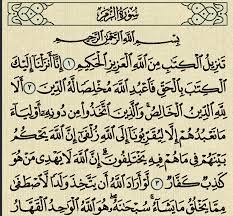 سُورَةُ الزُّمَرِ
بِسْمِ اللَّهِ الرَّحْمَٰنِ الرَّحِيمِ
تَنزِيلُ الْكِتَٰبِ مِنَ اللَّهِ الْعَزِيزِ الْحَكِيمِ ١ إِنَّا أَنزَلْنَا إِلَيْكَ
الْكِتَٰبَ بِالْحَقِّ فَاعْبُدِ اللَّهَ مُخْلِصًا لَّهُ الدِّينَ ٢ أَلَا
لِلَّهِ الدِّينُ الْخَالِصُ وَالَّذِينَ اتَّخَذُوا مِن دُونِهِ أَوْلِيَاءَ
مَا نَعْبُدُهُمْ إِلَّا لِيُقَرِّبُونَا إِلَى اللَّهِ زُلْفَىٰ إِنَّ اللَّهَ يَحْكُمُ
بَيْنَهُمْ فِي مَا هُمْ فِيهِ يَخْتَلِفُونَ إِنَّ اللَّهَ لَا يَهْدِي مَنْ هُوَ
كَٰذِبٌ كَفَّارٌ ٣ لَّوْ أَرَادَ اللَّهُ أَن يَتَّخِذَ وَلَدًا لَّاصْطَفَىٰ
مِمَّا يَخْلُقُ مَا يَشَاءُ سُبْحَٰنَهُ هُوَ اللَّهُ الْوَٰحِدُ الْقَهَّارُ